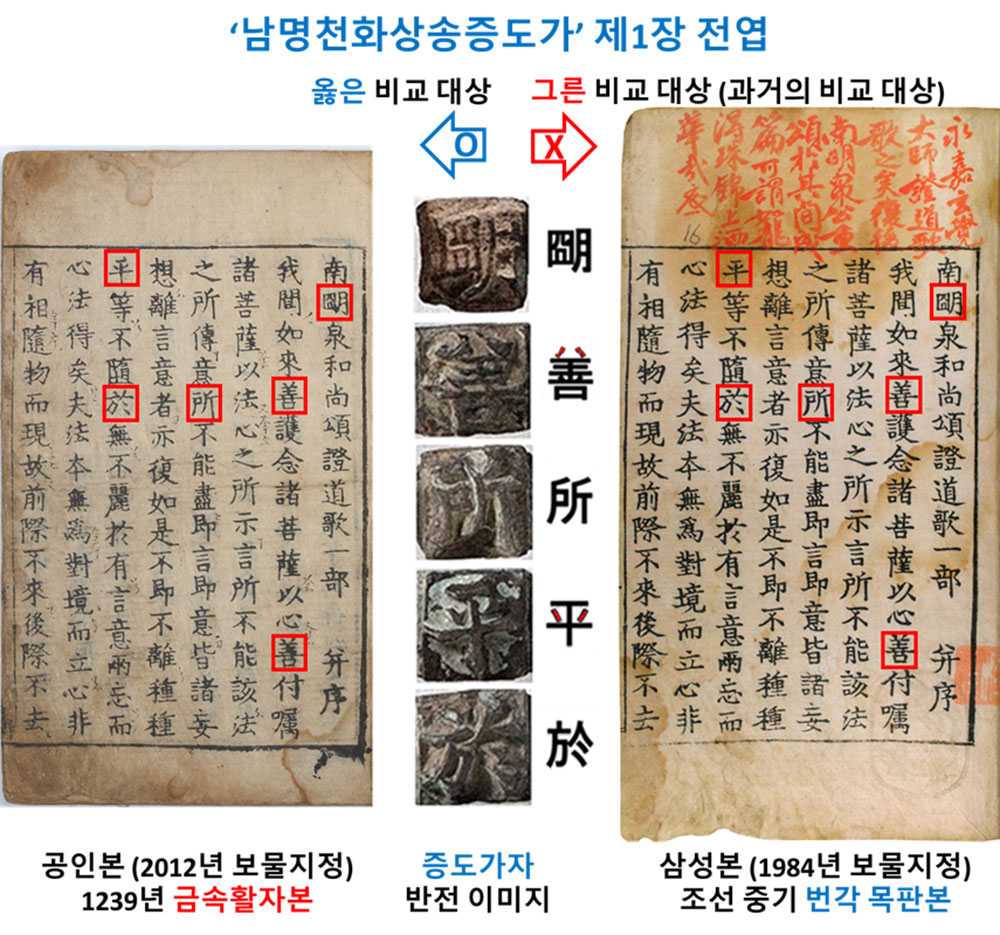 ‘남명천화상송증도가’ 제1장 전엽
옳은 비교 대상
그른 비교 대상 (과거의 비교 대상)
O
X
南朙泉和尚頌證道歌一部 并序
我聞如來善護念諸菩薩以心善付囑
諸菩薩以法心之所示言所不能該法
之所傳意所不能盡即言即意皆諸妄
想離言意者亦復如是不即不離種種
平等不隨於無不麗於有言意兩忘而
心法得矣夫法本無爲對境而立心非
有相隨物而現故前際不來後際不去
朙
善
所
平
於
永嘉玄覺
大師證道歌
歌之矣復後
南明泉公重
頌於其間成
篇可謂龍
珠錦上
華哉
16
南朙泉和尚頌證道歌一部 并序
我聞如來善護念諸菩薩以心善付囑
諸菩薩以法心之所示言所不能該法
之所傳意所不能盡即言即意皆諸妄
想離言意者亦復如是不即不離種種
平等不隨於無不麗於有言意兩忘而
心法得矣夫法本無爲對境而立心非
有相隨物而現故前際不來後際不去
공인본 (2012년 보물지정)
1239년 금속활자본
증도가자
반전 이미지
삼성본 (1984년 보물지정)
조선 중기 번각 목판본